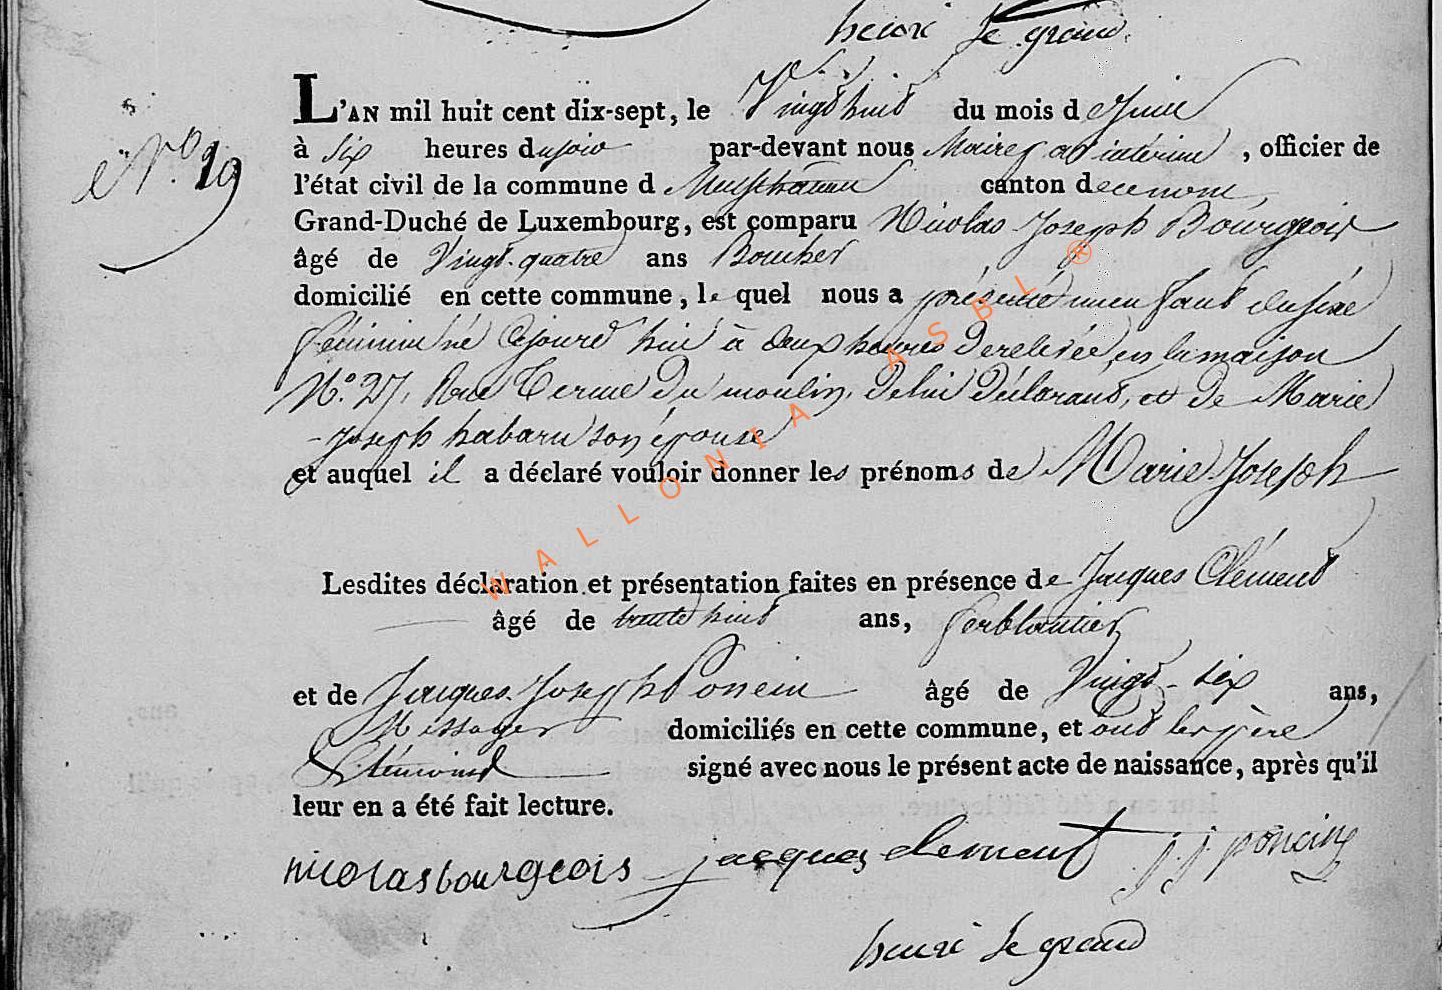 henri Le grand
L'AN mil huit cent dix-sept, le Vingt huit du mois de Juin
N.º 19
à Six heures du soir par-devant nous Maire par intérim, officier de
l'état civil de la commune d Neufchateau canton de ce nom,
Grand-Duché de Luxembourg, est comparu Nicolas Joseph Bourgeois
âgé de Vingt-quatre ans Boucher
domicilié en cette commune, le quel nous a présenté un enfant du sexe
féminin né ce jourd'hui à deux heures de relevée, en la maison
N.º 27, Rue Terme du moulin, de lui Déclarant, et de Marie
-joseph habaru son épouse
et auquel il a déclaré vouloir donner les prénoms de Marie-Joseph
Lesdites déclaration et présentation faites en présence de Jacques Clément
âgé de trente huit ans, ferblantier
et de Jacques-Joseph Poncin âgé de Vingt-six ans,
Messager domiciliés en cette commune, et ont les père
& témoins signé avec nous le présent acte de naissance, après qu'il
leur en a été fait lecture.
nicolas bourgeois jacques clement j j poncin
henri Le grand
WALLONIA ASBL ®